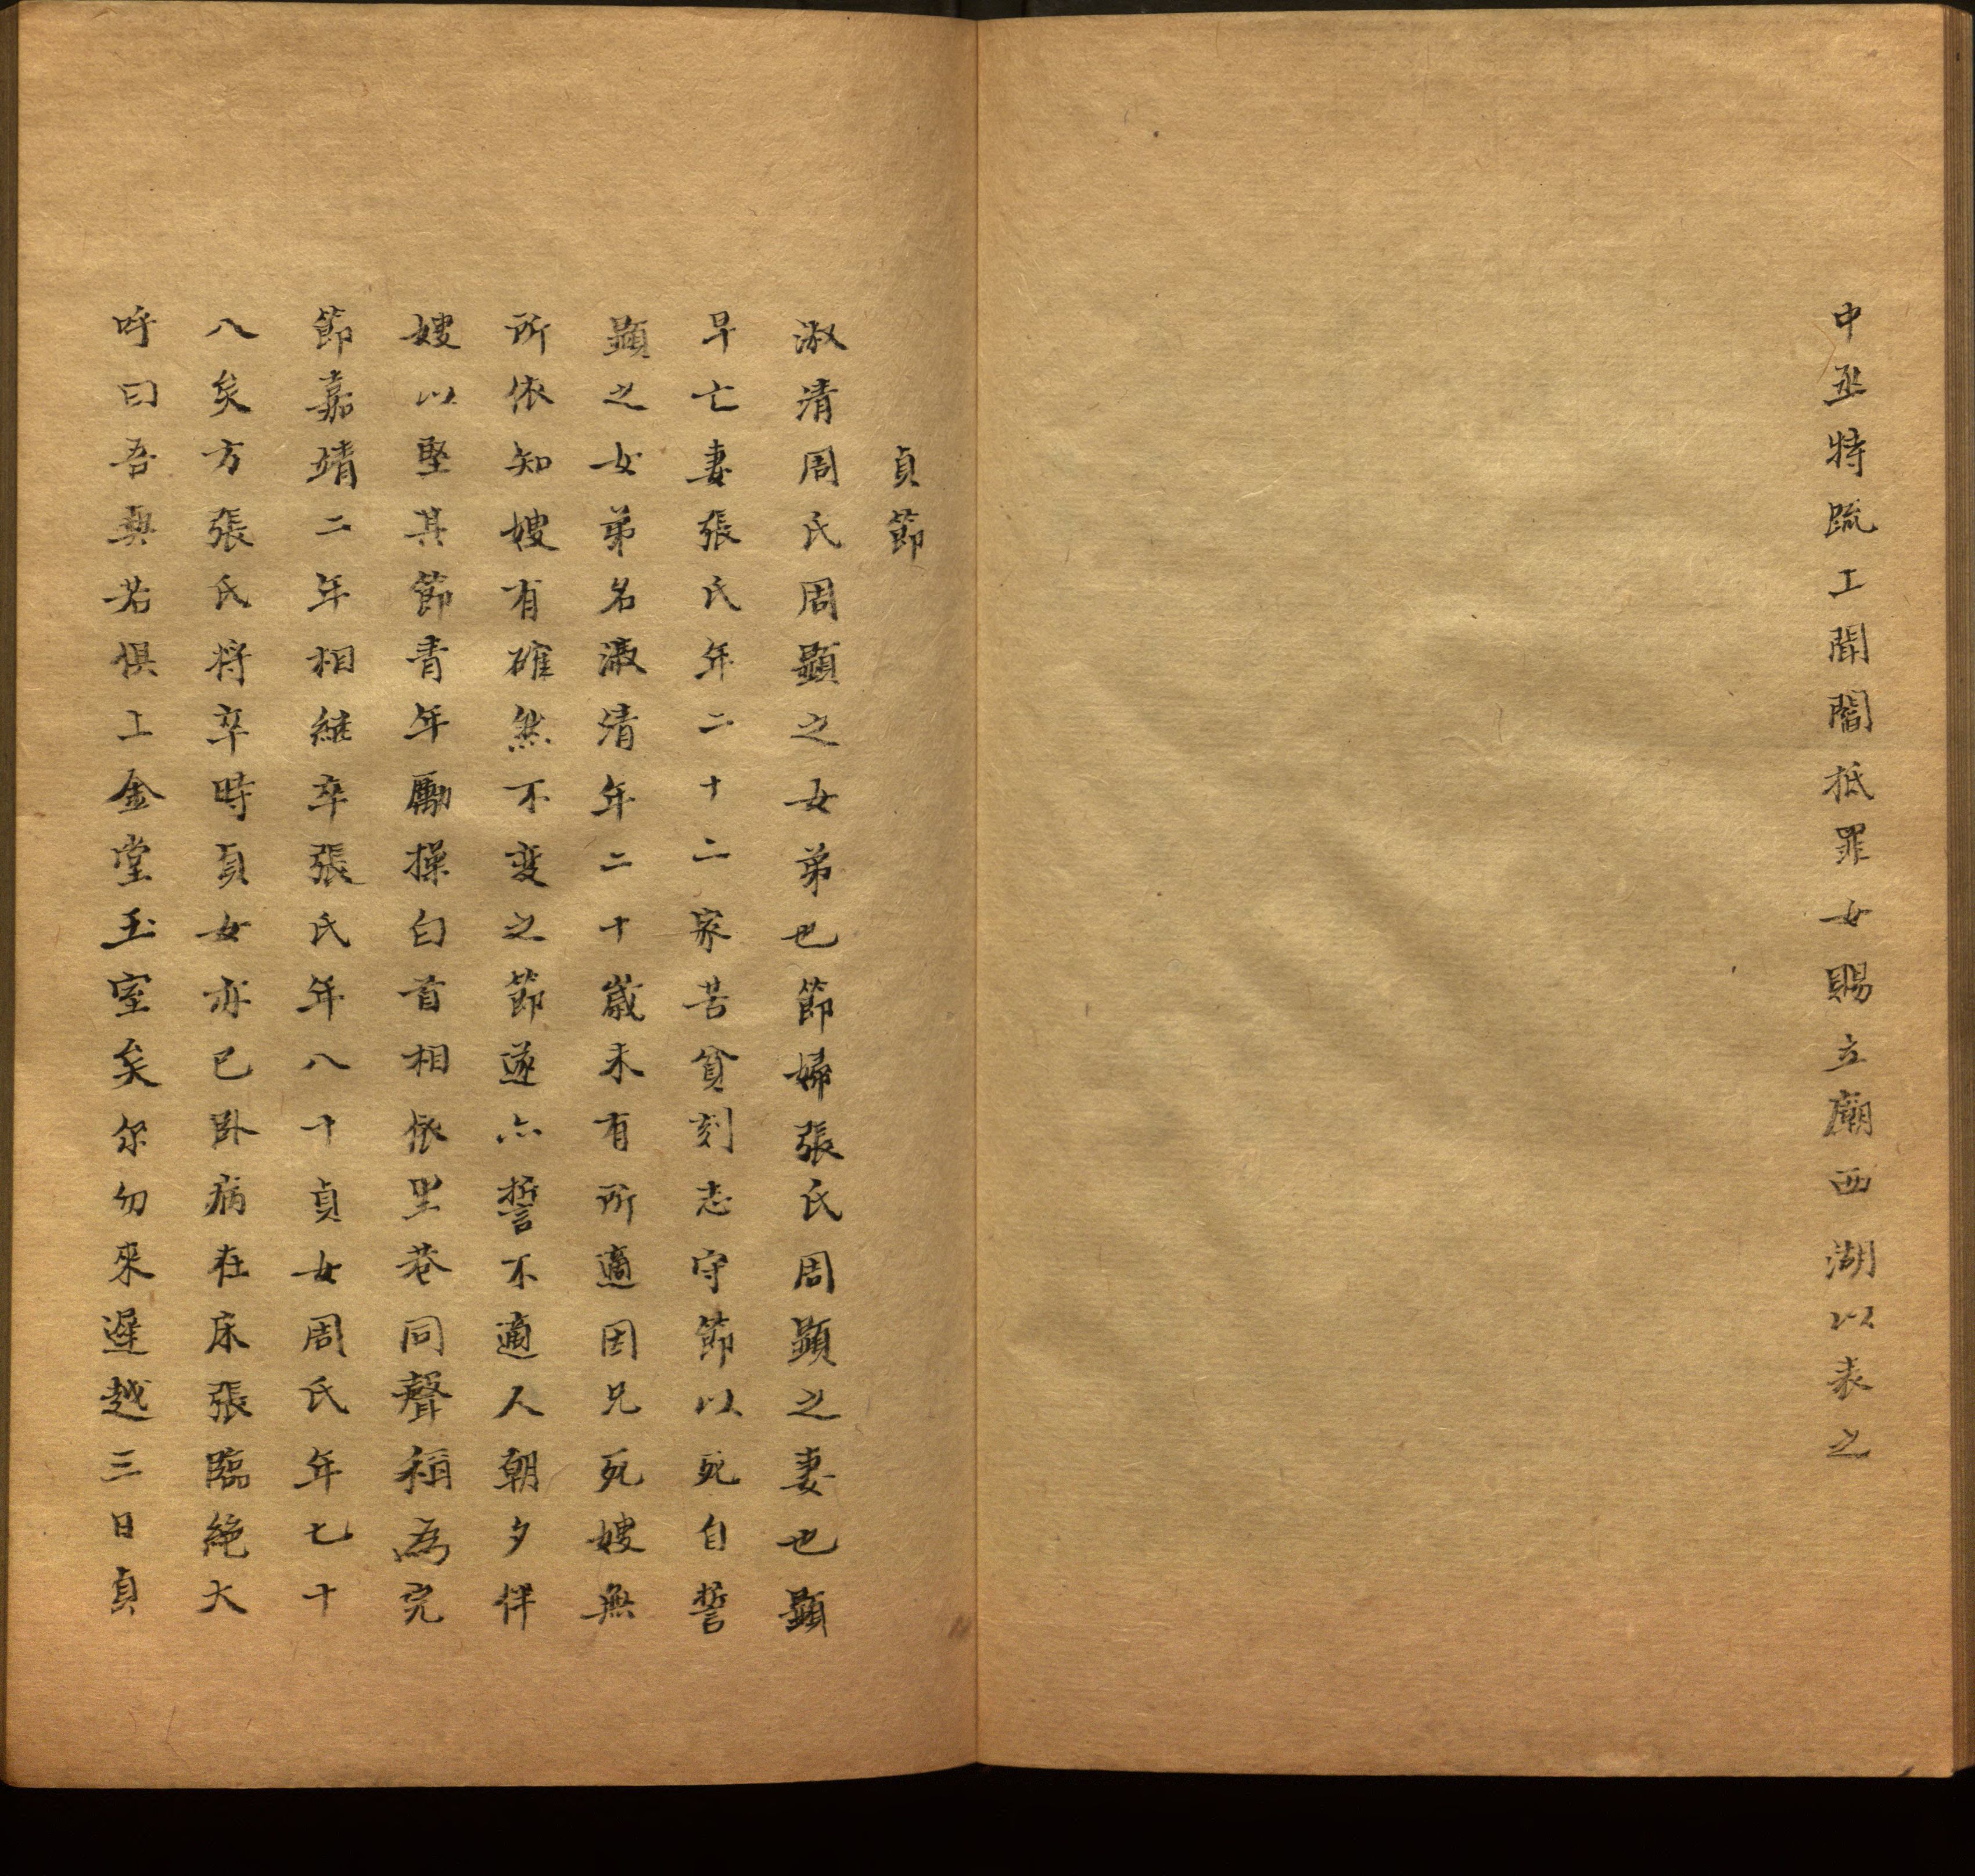 中丞特疏上聞閹抵罪女賜立廟西湖以表之
貞節
淑清周氏周顯之女弟也節婦張氏周顯之妻也顯
早亡妻張氏年二十二家苦貧刻志守節以死自誓
顯之女弟名淑清年二十歲未有所適因兄死嫂無
所依知嫂有確然不变之節遂亦誓不適人朝夕伴
嫂以堅其節青年勵操白首相依里巷同聲稱為完
節嘉靖二年相繼卒張氏年八十貞女周氏年七十
八矣方張氏将卒時貞女亦已卧病在床張臨絶大
呼曰吾與若俱上金堂玉室矣尔勿來遲越三日貞